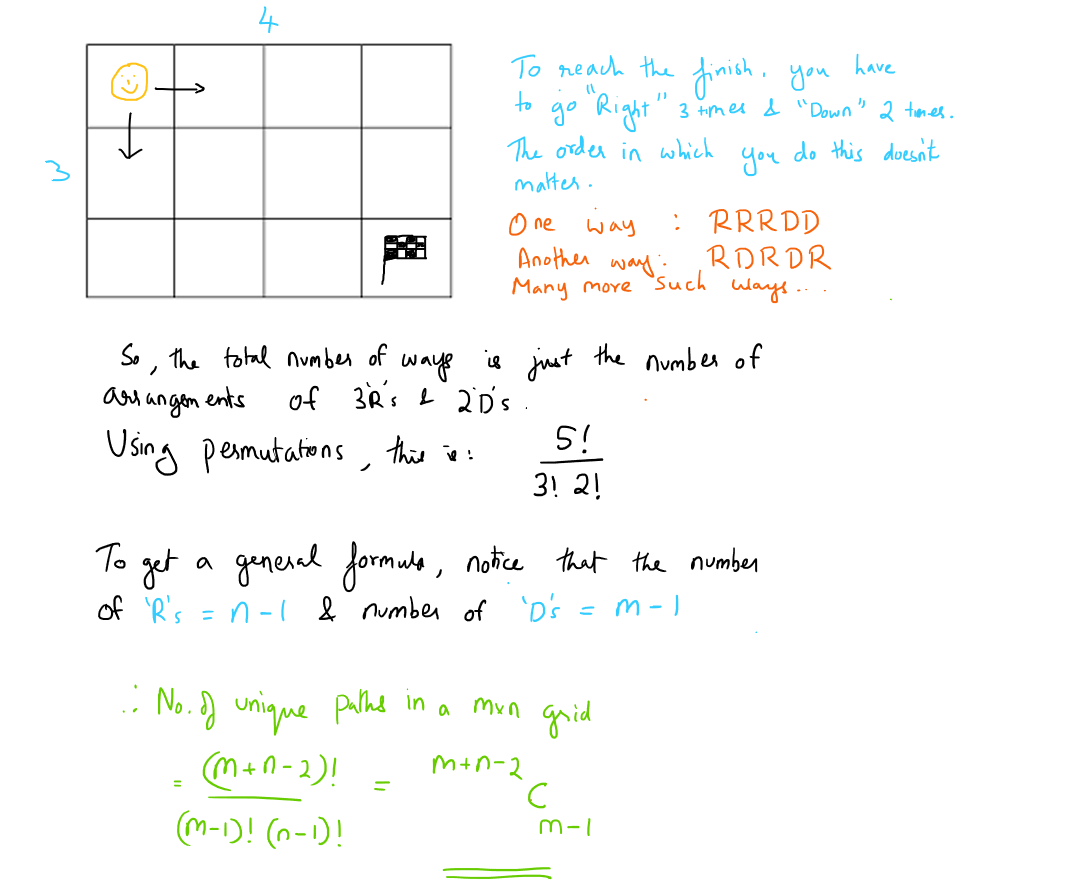 4
3
To reach the finish, you have
to go "Right" 3 times & "Down" 2 times.
The order in which you do this doesn't
matter.
One way : RRRDD
Another way: RDRDR
Many more such ways...
So, the total number of ways is just the number of
arrangements of 3 'R's & 2 'D's.
Using permutations, this is: 5! / 3! 2!
To get a general formula, notice that the number
of 'R's = n-1 & number of 'D's = m-1
∴ No. of unique paths in a mxn grid
= (m+n-2)! / (m-1)! (n-1)! = m+n-2 C m-1